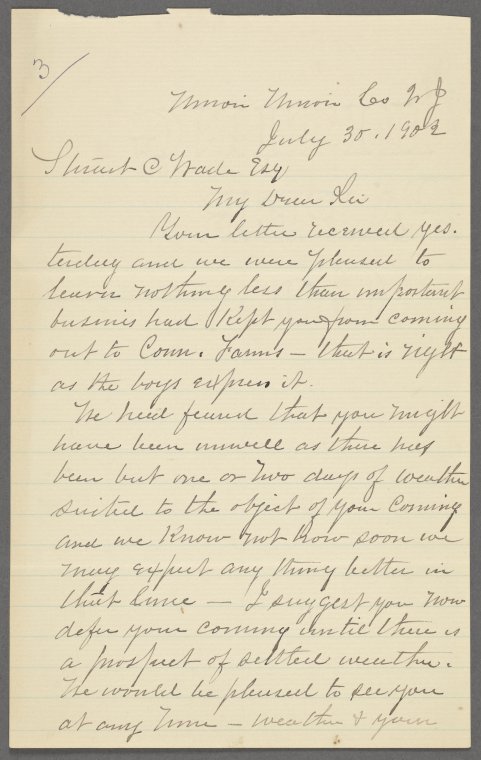 3/
Union Union Co N J
July 30. 1902
Stuart C Wade Esq
My Dear Sir
Your letter received yes-
terday and we were pleased to
learn nothing less than important
business had kept you from coming
out to Conn. Farms – that is right
as the boys express it.
We had feared that you might
have been unwell as there has
been but one or two days of weather
suited to the object of your coming
and we know not how soon we
may expect any thing better in
that line – I suggest you now
defer your coming until there is
a prospect of settled weather.
We would be pleased to see you
at any time – weather & your